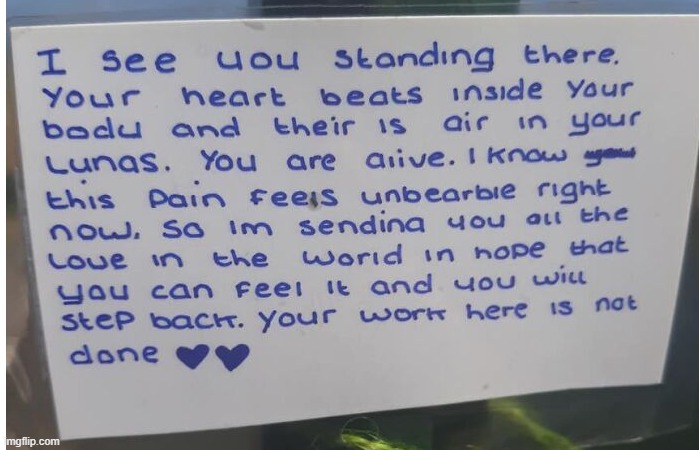 I see you standing there.
Your heart beats inside your
body and their is air in your
Lungs. You are alive. I know
this pain feels unbearble right
now. So im sending you all the
Love in the world in hope that
you can feel it and you will
step back. Your work here is not
done ♥♥
mgflip.com